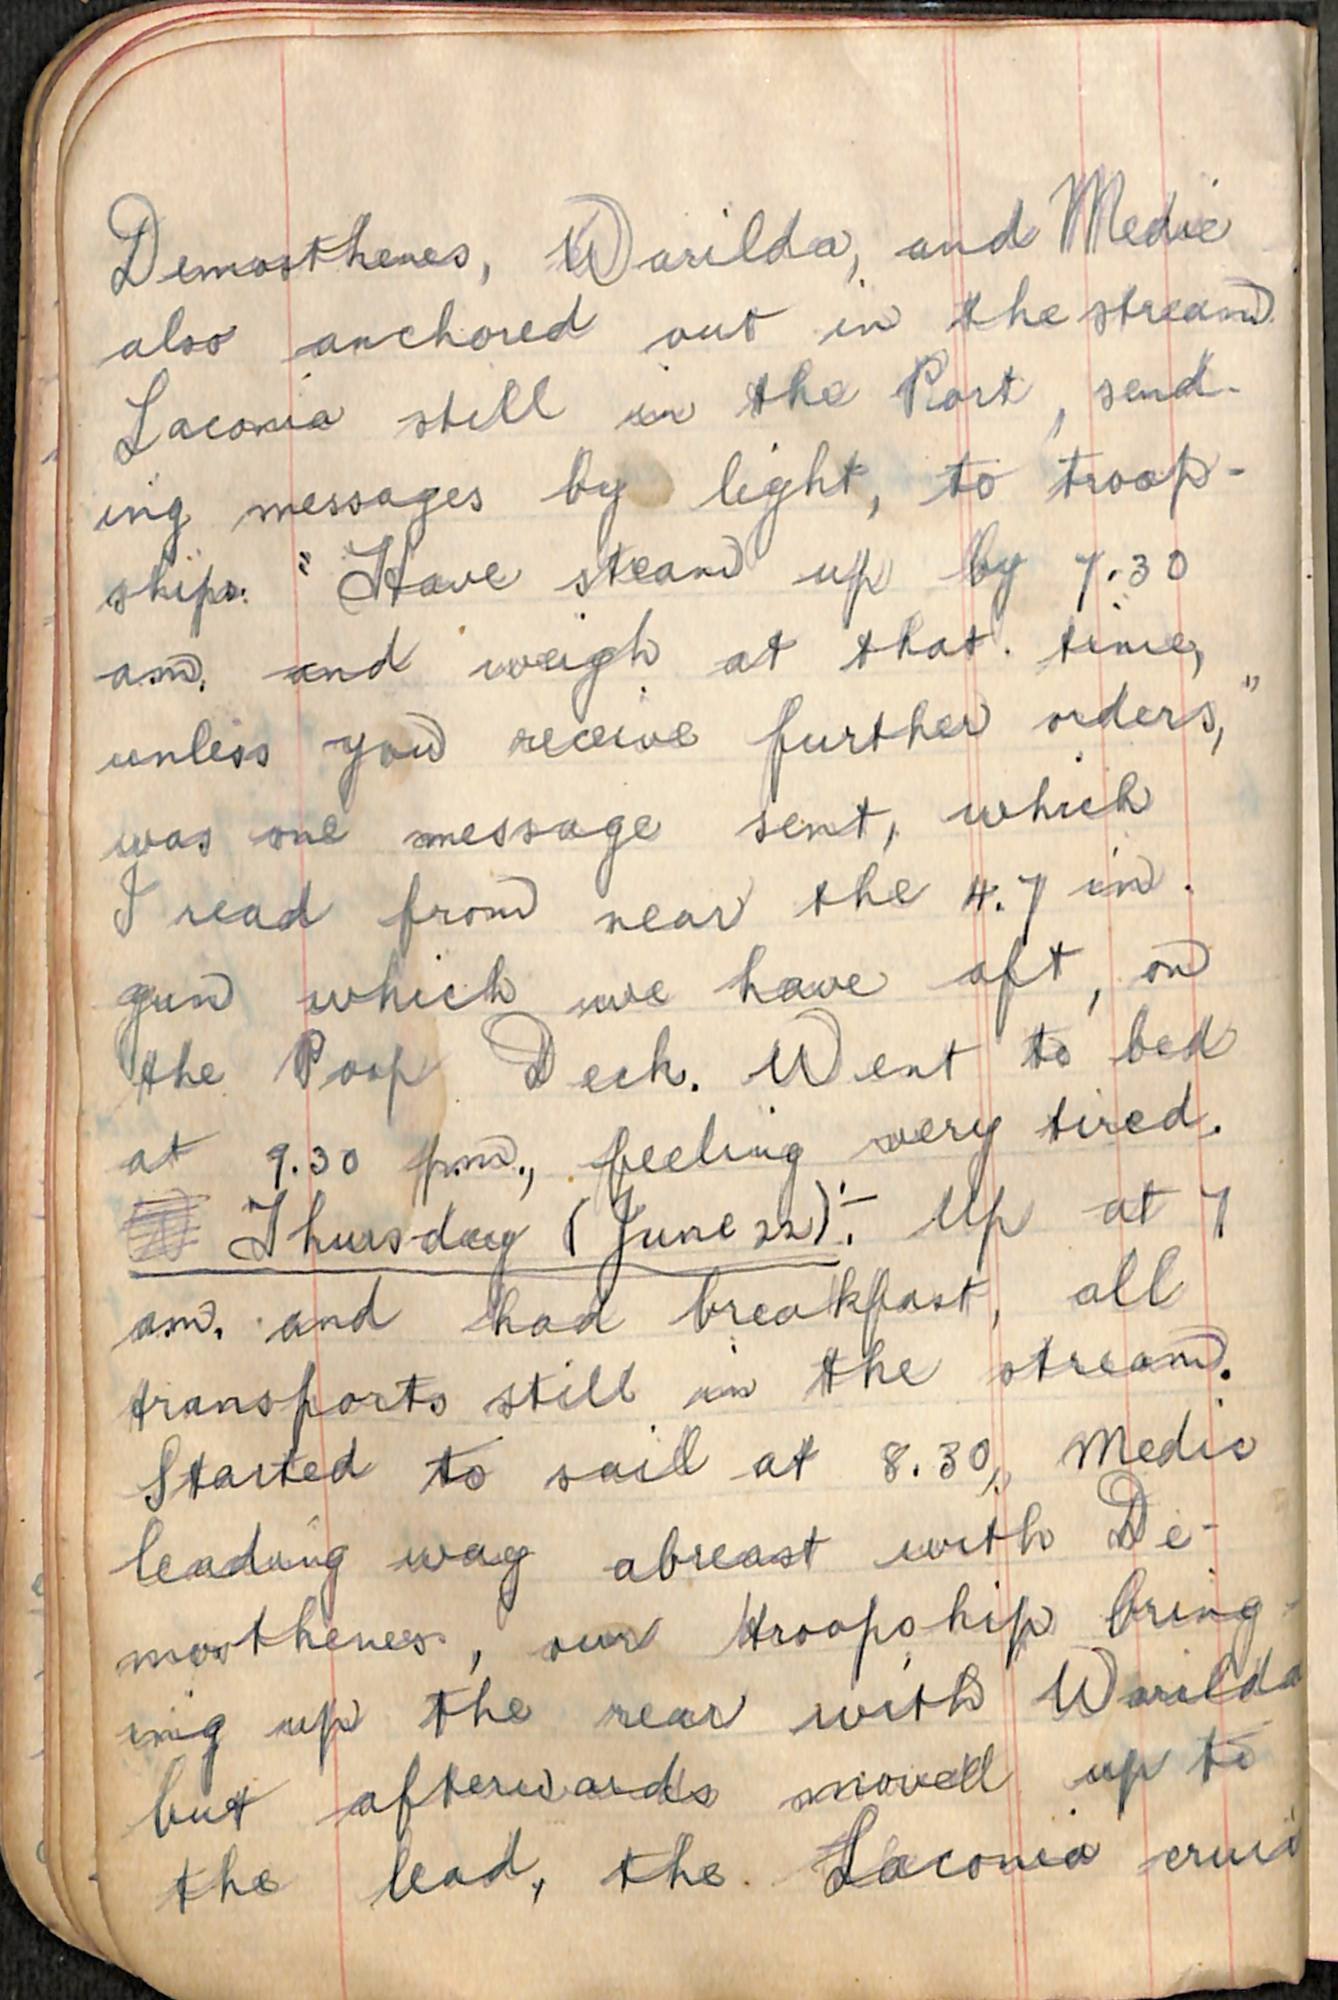 Demosthenes, Warilda, and Medic
also anchored out in the stream
Laconia still in the Port, send-
ing messages by light, to troop-
ships. "Have steam up by 7.30
am. and weigh at that. time,
unless you receive further orders,"
was one message sent, which
I read from near the 4.7 in.
gun which we have aft, on
the Poop Deck. Went to bed
at 9.30 pm., feeling very tired.
Thursday (June 22):- Up at 7
am. and had breakfast, all
transports still in the stream.
Started to sail at 8.30, Medic
leading way abreast with De-
mosthenes, our troopship bring-
ing up the rear with Warilda
but afterwards moved up to
the lead, the Laconia cruis